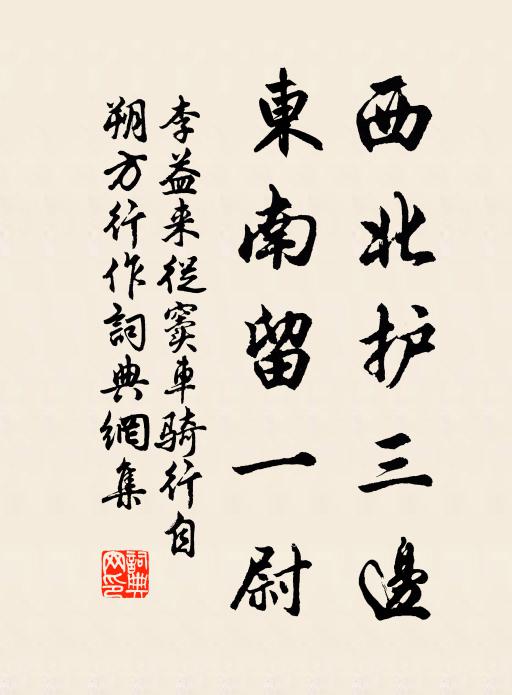 西北护三邊
東南留一尉
李益来從竇車騎行自
朔方行作詞典網集
詞典网印